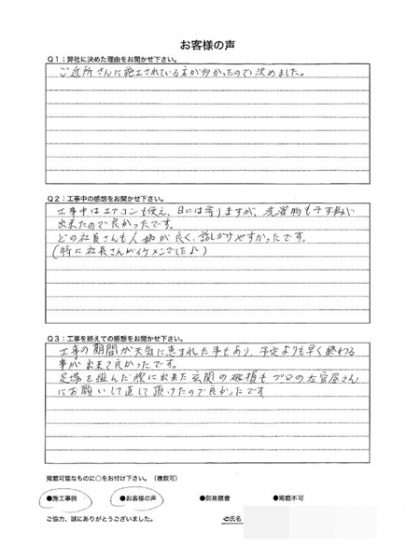 お客様の声
Q1：弊社に決めた理由をお聞かせ下さい。
ご近所さんに施工されている方が多かったので決めました。
Q2：工事中の感想をお聞かせ下さい。
工事中はエアコンも使え、日には寄りますが、洗濯物も干す事が
出来たので良かったです。
どの社員さんも人柄が良く、話しかけやすかったです。
(特に社長さんがイケメンでした♪)
Q3：工事を終えての感想をお聞かせ下さい。
工事の期間が天気に恵まれた事もあり、予定よりも早く終わる
事が出来て良かったです。
足場を組んだ際に出来た玄関の破損もプロの左官屋さん
にお願いして直して頂けたので良かったです
掲載可能なものに○をお付け下さい。（複数可）
●施工事例 ●お客様の声 ●御見積書 ●掲載不可
ご協力、誠にありがとうございました。
氏名